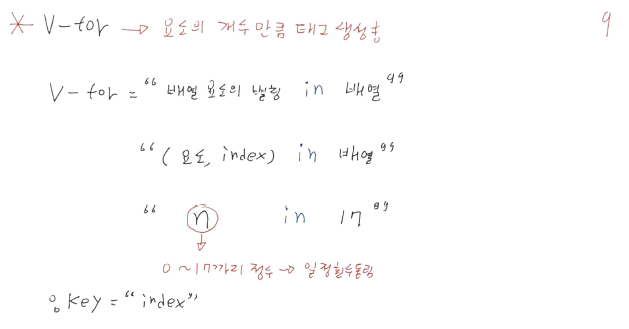 * V-for → 요소의 개수만큼 태그 생성함
9
V-for = “배열 요소의 별칭 in 배열”
“(요소, index) in 배열”
“n in 17”
0 ~ 17까지 정수 → 일정횟수돌림
:key = “index”